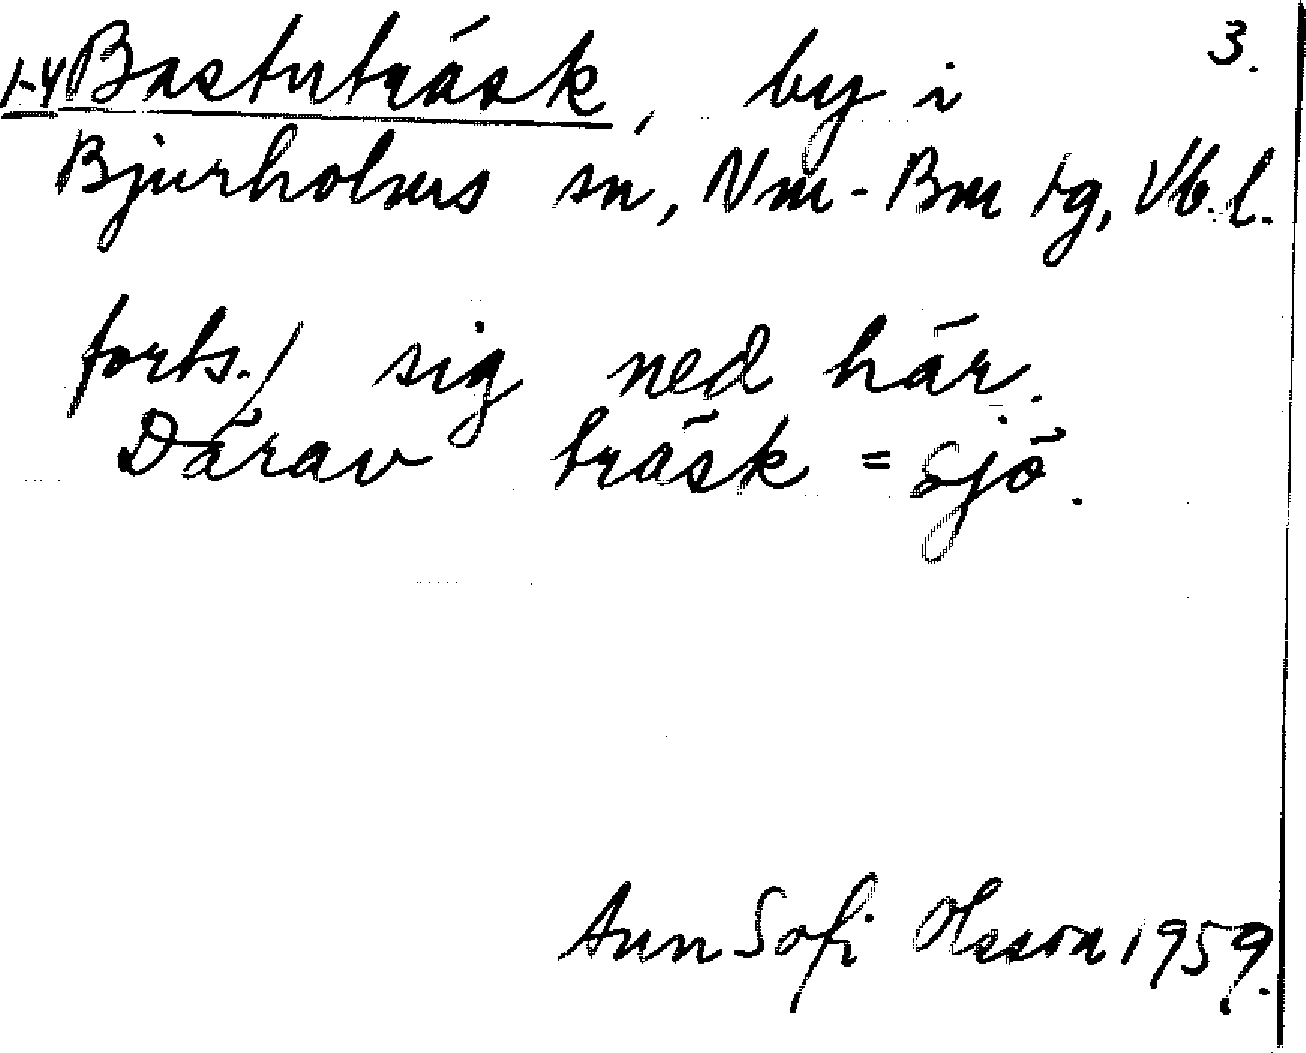 3.
1-4 Bastuträsk, by i
Bjurholms sn, Nm-Bm tg, Vb.l.
forts./ sig ned här.
Därav träsk = sjö.
Ann Sofi Olsson 1959.